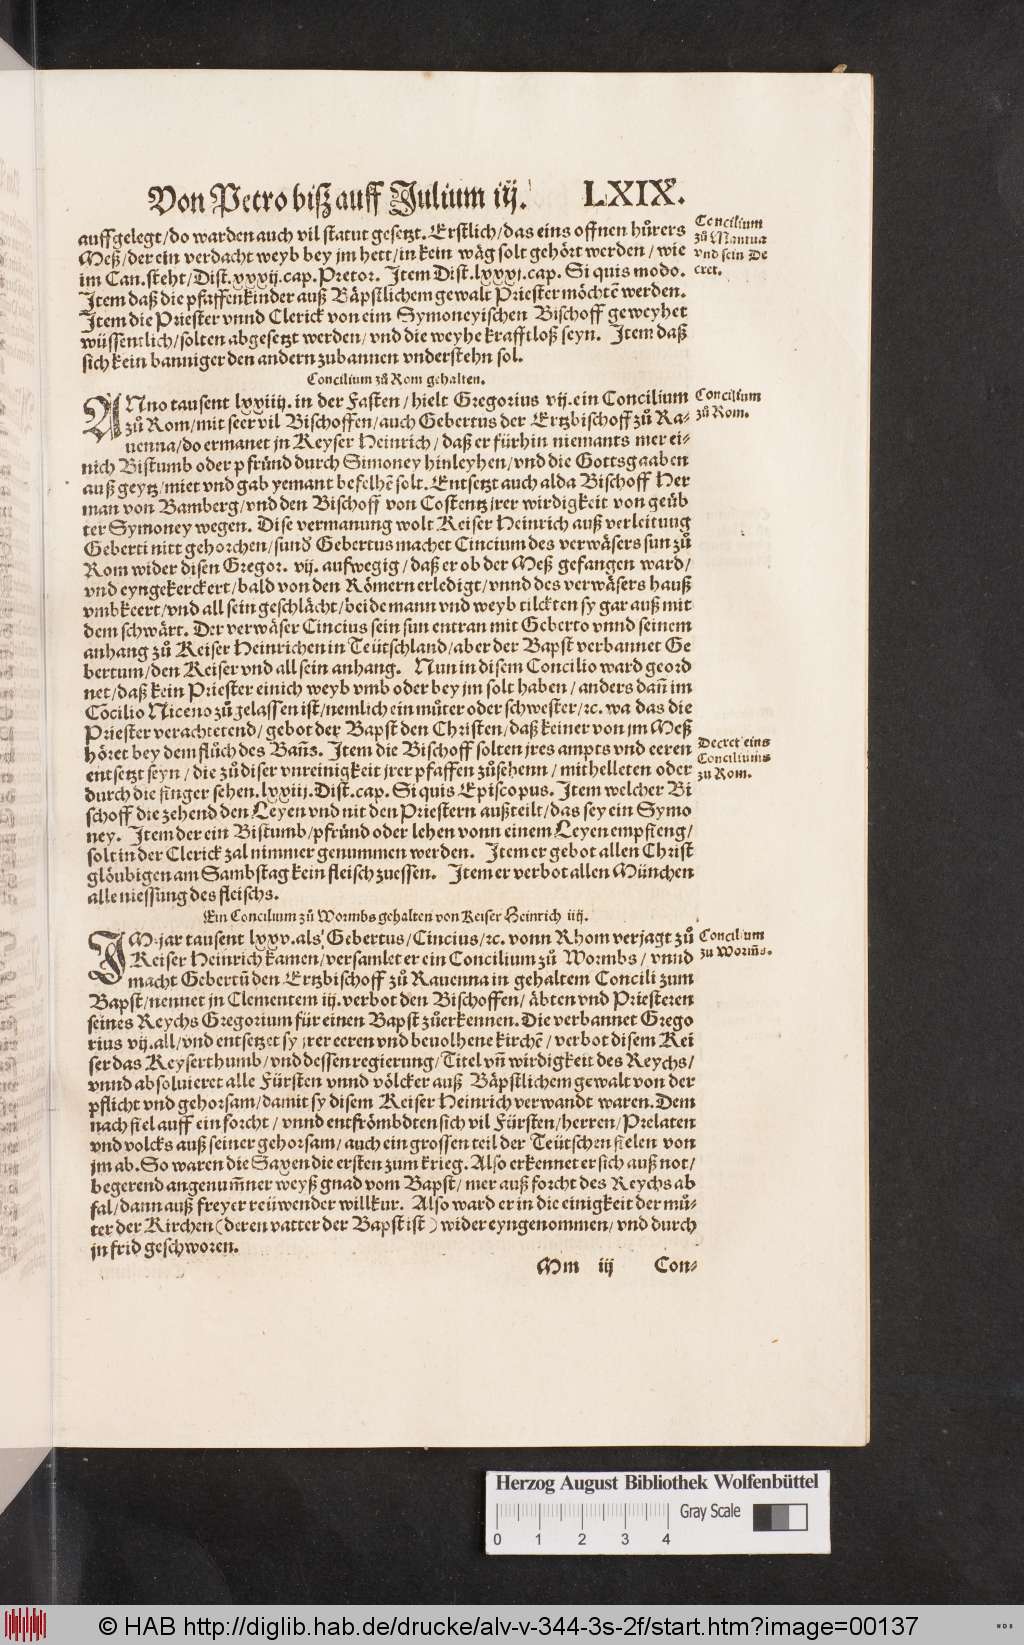 Von Petro biß auff Julium iij. LXIX.
auffgelegt/do warden auch vil statut gesetzt. Erstlich/das eins offnen hůrers
Meß/der ein verdacht weyb bey jm hett/in kein wåg solt gehört werden/wie
im Can. steht/Dist. xxxij. cap. Pretor. Item Dist. lxxxj. cap. Si quis modo.
Item daß die pfaffenkinder auß Båpstlichem gewalt Priester möchtẽ werden.
Item die Priester vnnd Clerick von eim Symoneyischen Bischoff geweyhet
wüssentlich/solten abgesetzt werden/vnd die weyhe krafftloß seyn. Item daß
sich kein banniger den andern zubannen vnderstehn sol.
Concilium
zů Mantua
vnd sein De
cret.
Concilium zů Rom gehalten.
ANno tausent lxxiiij. in der Fasten/hielt Gregorius vij. ein Concilium
zů Rom/mit seer vil Bischoffen/auch Gebertus der Ertzbischoff zů Ra-
uenna/do ermanet jn Keyser Heinrich/daß er fürhin niemants mer ei-
nich Bistumb oder pfründ durch Simoney hinleyhen/vnd die Gottsgaaben
auß geytz/miet vnd gab yemant befelhẽ solt. Entsetzt auch alda Bischoff Her
man von Bamberg/vnd den Bischoff von Costentz jrer wirdigkeit von geüb
ter Symoney wegen. Dise vermanung wolt Keiser Heinrich auß verleitung
Geberti nitt gehorchen/sund Gebertus machet Cincium des verwåsers sun zů
Rom wider disen Gregor. vij. aufwegig/daß er ob der Meß gefangen ward/
vnd eyngekerckert/bald von den Römern erledigt/vnnd des verwåsers hauß
vmbkeert/vnd all sein geschlächt/beide mann vnd weyb tilckten sy gar auß mit
dem schwårt. Der verwåser Cincius sein sun entran mit Geberto vnnd seinem
anhang zů Keiser Heinrichen in Teütschland/aber der Bapst verbannet Ge
bertum/den Keiser vnd all sein anhang. Nun in disem Concilio ward geord
net/daß kein Priester einich weyb vmb oder bey jm solt haben/anders dañ im
Cõcilio Niceno zů gelassen ist/nemlich ein můter oder schwester/ꝛc. wa das die
Priester verachtetend/gebot der Bapst den Christen/daß keiner von jm Meß
höret bey dem flůch des Bañs. Item die Bischoff solten jres ampts vnd eeren
entsetzt seyn/die zů diser vnreinigkeit jrer pfaffen zůsehenn/mithelleten oder
durch die finger sehen. lxxiij. Dist. cap. Si quis Episcopus. Item welcher Bi
schoff die zehend den Leyen vnd nit den Priestern außteilt/das sey ein Symo
ney. Item der ein Bistumb/pfründ oder lehen vonn einem Leyen empfieng/
solt in der Clerick zal nimmer genummen werden. Item er gebot allen Christ
glöubigen am Sambstag kein fleisch zuessen. Item er verbot allen München
alle niessung des fleischs.
Concilium
zů Rom.
Decret eins
Conciliums
zu Rom.
Ein Concilium zů Wormbs gehalten von Keiser Heinrich iiij.
IM jar tausent lxxv. als Gebertus/Cincius/ꝛc. vonn Rhom verjagt zů
Keiser Heinrich kamen/versamlet er ein Concilium zů Wormbs/vnnd
macht Gebertũ den Ertzbischoff zů Rauenna in gehaltem Concili zum
Bapst/nennet jn Clementem iij. verbot den Bischoffen/åbten vnd Priesteren
seines Reychs Gregorium für einen Bapst zůerkennen. Die verbannet Grego
rius vij. all/vnd entsetzet sy jrer eeren vnd beuolhene kirchẽ/verbot disem Kei
ser das Keyserthumb/vnd dessen regierung/Titel vñ wirdigkeit des Reychs/
vnnd absoluieret alle Fürsten vnnd völcker auß Båpstlichem gewalt von der
pflicht vnd gehorsam/damit sy disem Keiser Heinrich verwandt waren. Dem
nach fiel auff ein forcht/vnnd entfrömbdten sich vil Fürsten/herren/Prelaten
vnd volcks auß seiner gehorsam/auch ein grossen teil der Teütschen fielen von
jm ab. So waren die Saxen die ersten zum krieg. Also erkennet er sich auß not/
begerend angenum̃ner weyß gnad vom Bapst/mer auß forcht des Reychs ab
fal/dann auß freyer reüwender willkur. Also ward er in die einigkeit der mů-
ter der Kirchen (deren vatter der Bapst ist) wider eyngenommen/vnd durch
jn frid geschworen.
Concilium
zu Worm̃s.
Mm iij Con-
Herzog August Bibliothek Wolfenbüttel
0 1 2 3 4 Gray Scale
© HAB http://diglib.hab.de/drucke/alv-v-344-3s-2f/start.htm?image=00137